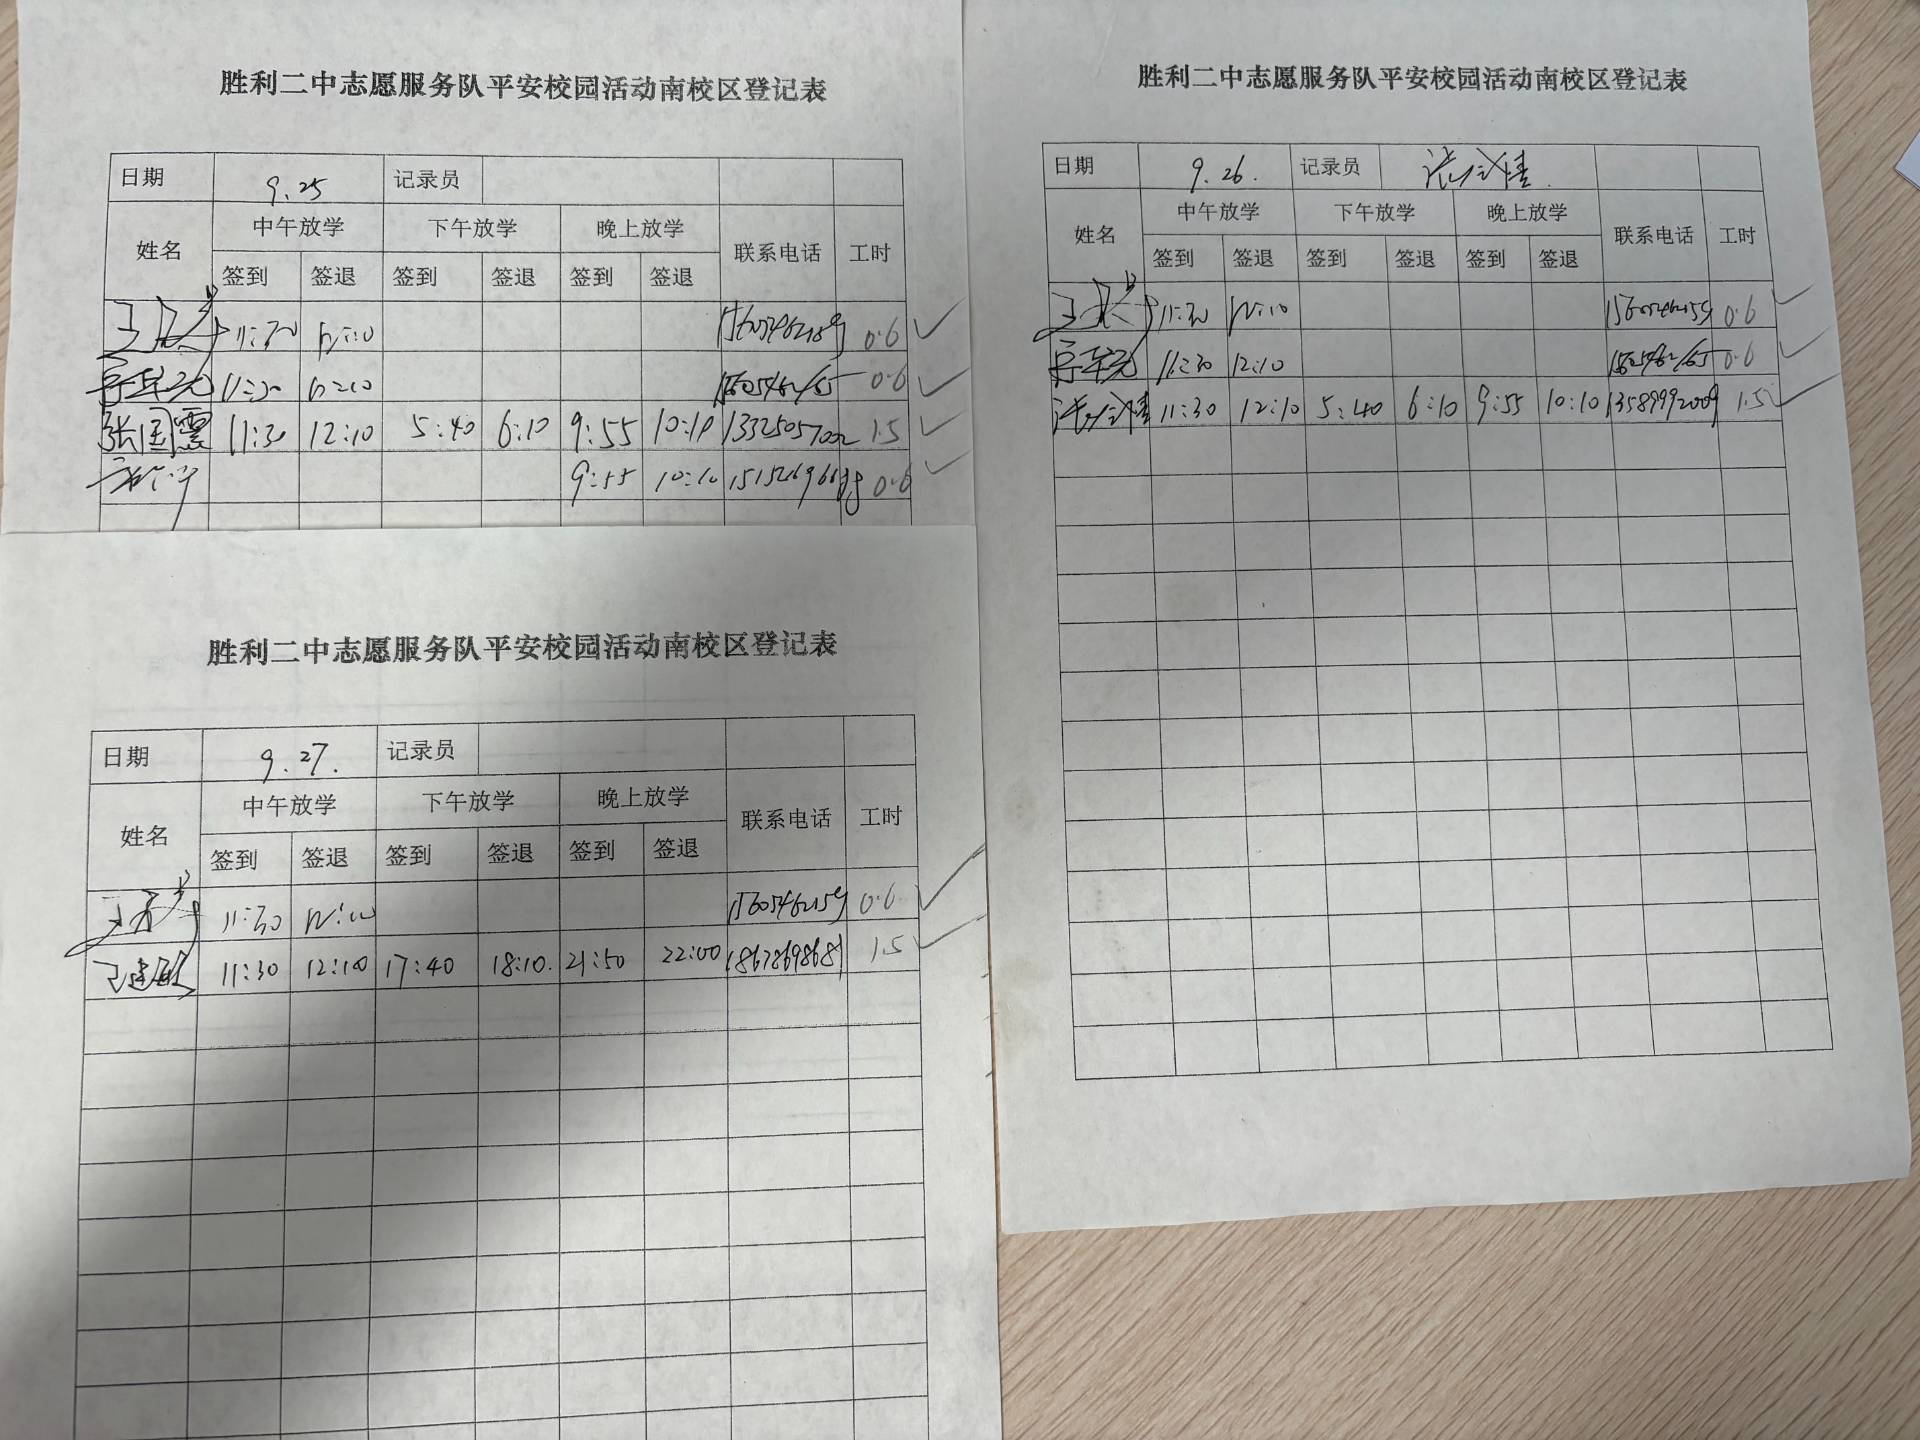 胜利二中志愿服务队平安校园活动南校区登记表
日期 9.25 记录员
姓名 中午放学 下午放学 晚上放学 联系电话 工时
签到 签退 签到 签退 签到 签退
11:30 12:10 15605462159 0.6
11:30 12:10 15605462165 0.6
张国震 11:30 12:10 5:40 6:10 9:55 10:10 13325057002 1.5
9:55 10:10 0.6
胜利二中志愿服务队平安校园活动南校区登记表
日期 9.26. 记录员
姓名 中午放学 下午放学 晚上放学 联系电话 工时
签到 签退 签到 签退 签到 签退
11:30 12:10 15605462159 0.6
11:30 12:10 15605462165 0.6
11:30 12:10 5:40 6:10 9:55 10:10 13589992009 1.5
胜利二中志愿服务队平安校园活动南校区登记表
日期 9.27. 记录员
姓名 中午放学 下午放学 晚上放学 联系电话 工时
签到 签退 签到 签退 签到 签退
11:30 15605462159 0.6
11:30 12:10 17:40 18:10. 21:50 22:00 18678698681 1.5